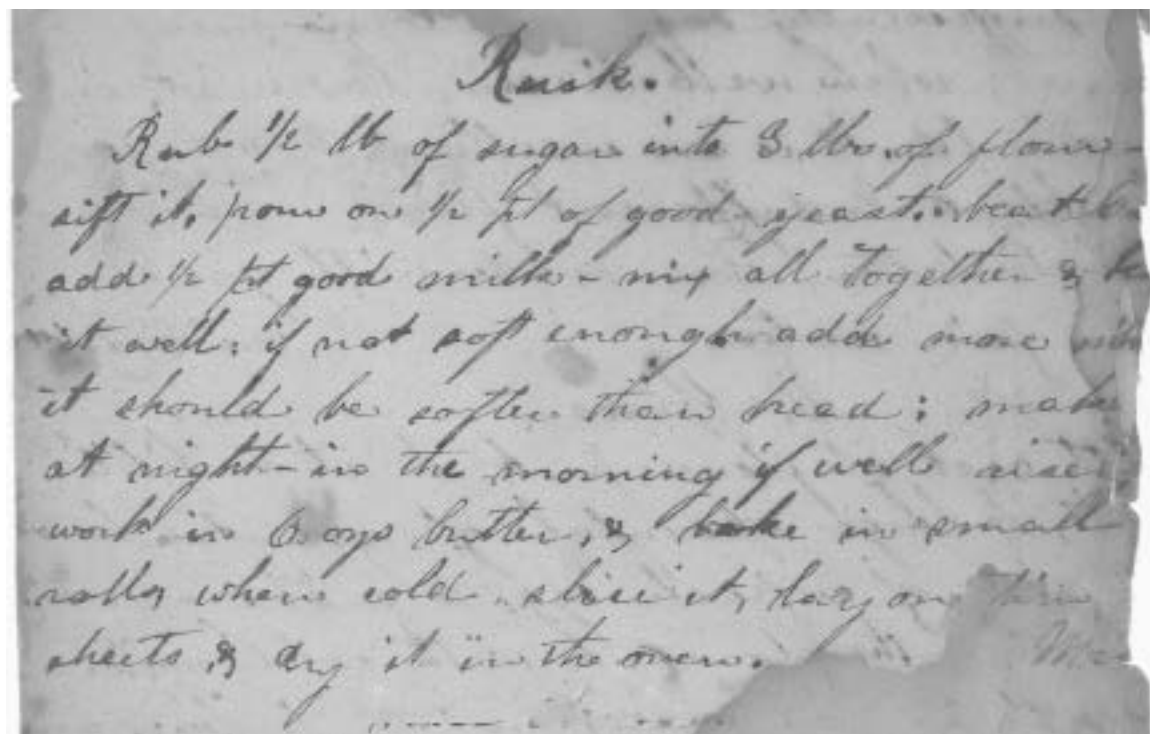 Rusk.
Rub 1/2 lb of sugar into 3 lbs. of flour -
sift it, pour on 1/2 pt of good yeast. beat
add 1/2 pt good milk - mix all together &
it well; if not soft enough add more
it should be softer than bread; make
at night - in the morning if well risen
work in 6 ozs butter, & bake in small
rolls, when cold, slice it, lay on tin
sheets, & dry it in the oven.